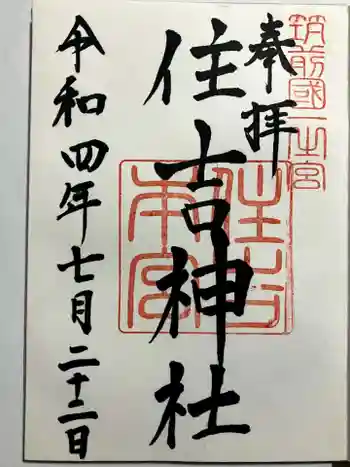 筑前國一之宮
奉拝
住吉神社
住吉本宮
令和四年七月二十二日